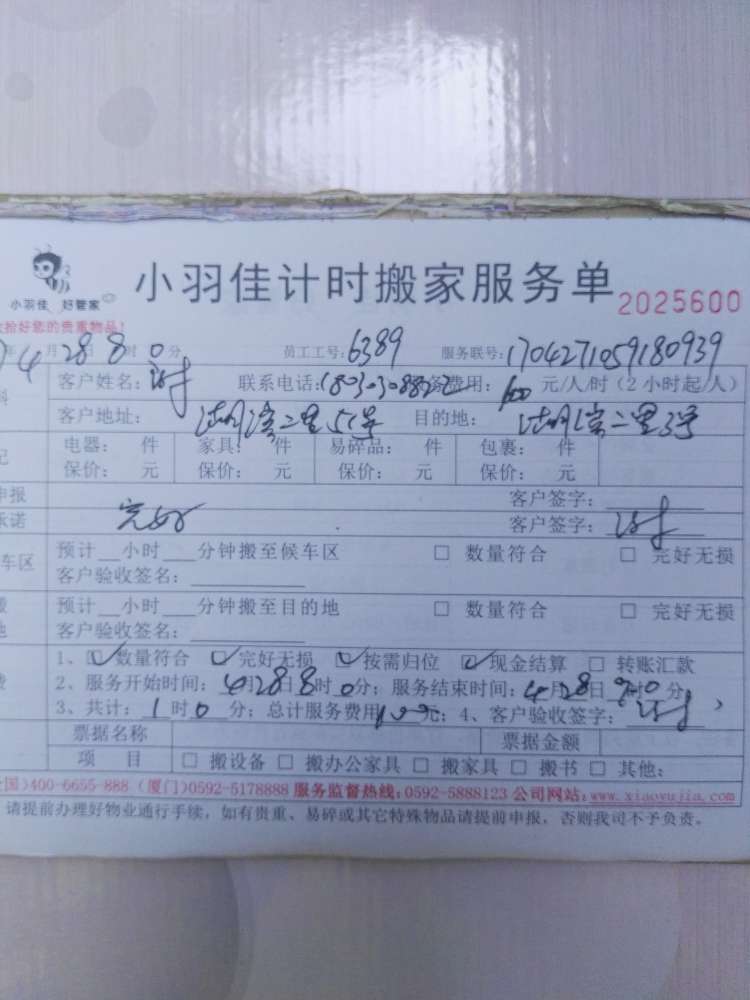 小羽佳 好管家
小羽佳计时搬家服务单 2025600
拾好您的贵重物品!
年 4 月 28 日 8 时 0 分 员工工号: 6389 服务联号: 1704271059180939
客户姓名: 联系电话: 费用: 元/人/时（2小时起/人）
客户地址: 二里51号 目的地: 二里3号
电器: 件 家具: 件 易碎品: 件 包裹: 件
保价: 元 保价: 元 保价: 元 保价: 元
申报 客户签字:
承诺 完好 客户签字:
车区 预计 小时 分钟搬至候车区 □ 数量符合 □ 完好无损
客户验收签名:
预计 小时 分钟搬至目的地 □ 数量符合 □ 完好无损
客户验收签名:
1、☑ 数量符合 ☑ 完好无损 ☑ 按需归位 ☑ 现金结算 □ 转账汇款
2、服务开始时间: 4月28日8时0分; 服务结束时间: 4月28日9时0分,
3、共计: 1时0分; 总计服务费用 100元; 4、客户验收签字:
票据名称 票据金额
项 目 □ 搬设备 □ 搬办公家具 □ 搬家具 □ 搬书 □ 其他:
国)400-6655-888（厦门)0592-5178888 服务监督热线:0592-5888123 公司网站:www.xiaoyujia.com
请提前办理好物业通行手续，如有贵重、易碎或其它特殊物品请提前申报，否则我司不予负责。